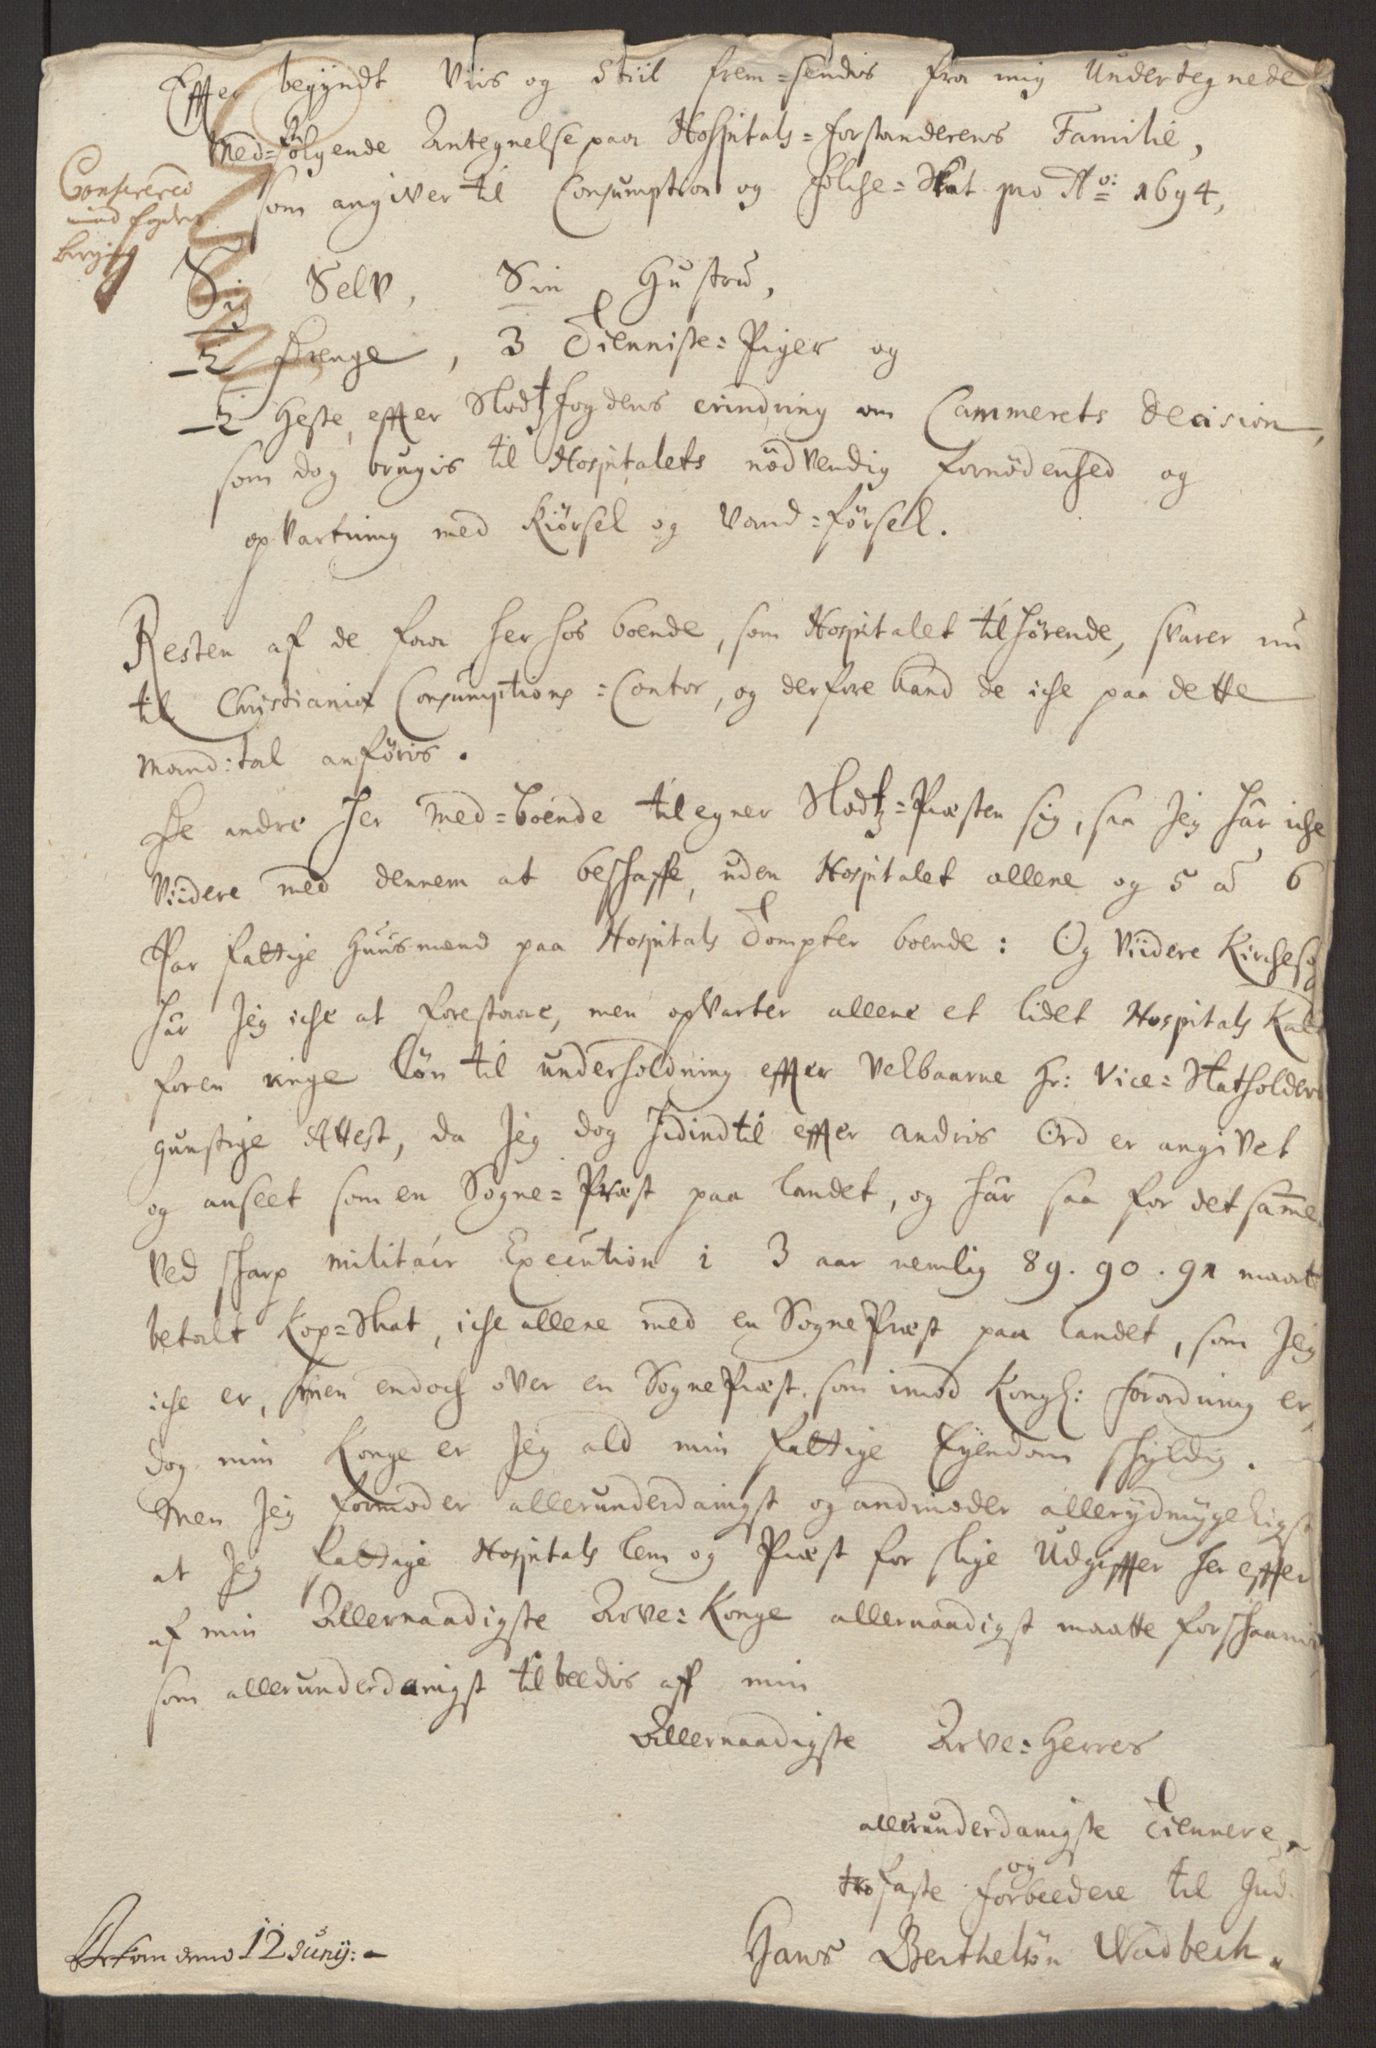 Effter begÿndt Viis og Stiil frem=sendis fra mig Undertegnede
Med=følgende Antegnelse paa Hospitals=forstanderens Familie,
som angiver til Consumption og Folche=Skat pro Ao: 1694,
Conferered
med fogdens
Sig Selv, Sin Hustru,
2 Drenge, 3 Tienniste=Piger og
2 Heste, effter Slodtzfogdens erindring om Cammerets Decision,
som dog brugis til Hospitalets nødvendig fornødenhed og
opvartning med Kiørsel og Vand=førsel.
Resten af de faa her hos boende, som Hospitalet tilhørende, svarer nu
til Christiania Consumptions=Contor, og derfore kand de iche paa dette
Mand:tal anføris.
De andre her Med=boende tilegner Slodtz=Præsten sig, saa Jeg har iche
Viidere med dennem at beschaffe, uden Hospitalet allene og 5 a 6
Par fattige Huusmend paa Hospitals Tompter boende: Og Viidere Kirchesog
har Jeg iche at forestaae, men opvarter allene et lidet Hospitals Kald
foren ringe Løn til underholdning effter Velbaarne Hr: Vice=Statholders
gunstige Attest, da Jeg dog hidindtil effter andris Ord er angivet
og anseet som en Sogne=Præst paa Landet, og har saa for det samme
ved scharp militair Execution i 3 aar nemlig 89. 90. 91 maatt
betalt Kop=Skat, iche allene med en SognePræst paa Landet, som Jeg
iche er, men endoch over en SognePræst, som imod Kongl: forordning er,
dog min Konge er Jeg ald min fattige Eyendom schyldig.
Men Jeg formoder allerunderdanigst og andmoder allerydmygeligst
at Jeg fattige Hospitals Lem og Præst for slige Udgiffter her effter
af min Allernaadigste Arve=Konge allernaadigst maatte forschaanis
som allerunderdanigst tilbeedis aff min
Allernaadigste Arve=Herres
allerunderdanigste Tiennere,
og
trofaste forbeedere til Gud.
Hans Berthelsøn Wadbech.
Ankom dend 12 Junij: